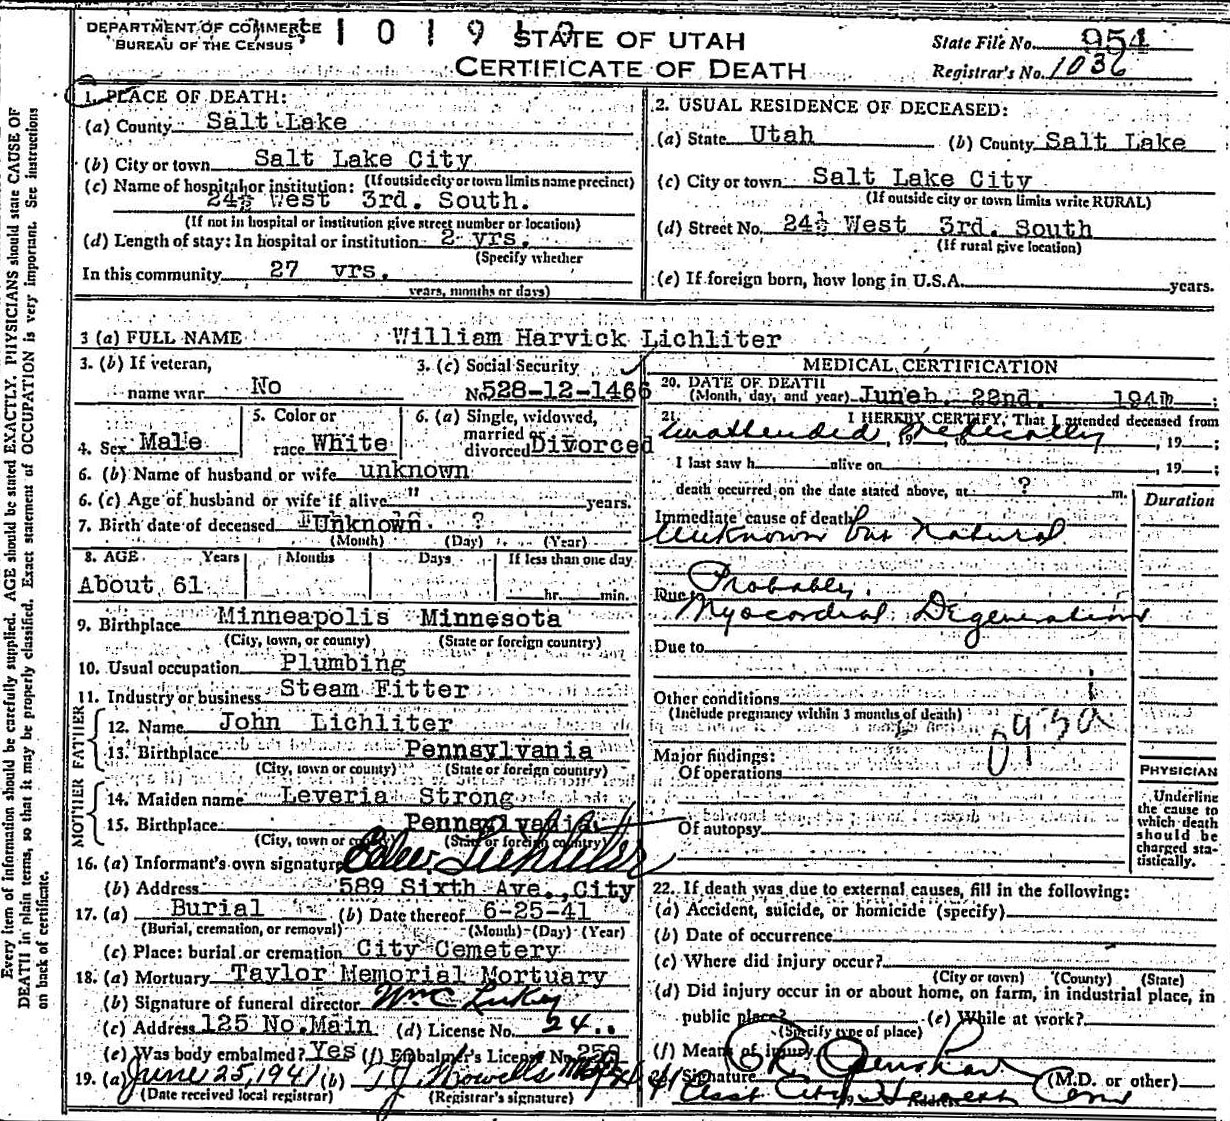 DEPARTMENT OF COMMERCE
BUREAU OF THE CENSUS
STATE OF UTAH
CERTIFICATE OF DEATH
State File No. 954
Registrar's No. 1036
1. PLACE OF DEATH:
(a) County Salt Lake
(b) City or town Salt Lake City
(If outside city or town limits name precinct)
(c) Name of hospital or institution:
24½ West 3rd. South.
(If not in hospital or institution give street number or location)
(d) Length of stay: In hospital or institution 2 yrs.
(Specify whether
In this community 27 yrs.
years, months or days)
2. USUAL RESIDENCE OF DECEASED:
(a) State Utah (b) County Salt Lake
(c) City or town Salt Lake City
(If outside city or town limits write RURAL)
(d) Street No. 24½ West 3rd. South
(If rural give location)
(e) If foreign born, how long in U.S.A. years.
3 (a) FULL NAME William Harvick Lichliter
3. (b) If veteran,
name war No
3. (c) Social Security
No. 528-12-1466
4. Sex Male
5. Color or
race White
6. (a) Single, widowed,
married or
divorced Divorced
6. (b) Name of husband or wife unknown
6. (c) Age of husband or wife if alive " years.
7. Birth date of deceased Unknown ?
(Month) (Day) (Year)
8. AGE Years Months Days If less than one day
About 61 hr. min.
9. Birthplace Minneapolis Minnesota
(City, town, or county) (State or foreign country)
10. Usual occupation Plumbing
11. Industry or business Steam Fitter
FATHER
12. Name John Lichliter
13. Birthplace Pennsylvania
(City, town or county) (State or foreign country)
MOTHER
14. Maiden name Leveria Strong
15. Birthplace Pennsylvania
(City, town or county) (State or foreign country)
16. (a) Informant's own signature Lichliter
(b) Address 589 Sixth Ave., City
17. (a) Burial (b) Date thereof 6-25-41
(Burial, cremation, or removal) (Month) (Day) (Year)
(c) Place: burial or cremation City Cemetery
18. (a) Mortuary Taylor Memorial Mortuary
(b) Signature of funeral director
(c) Address 125 No. Main (d) License No. 24
(e) Was body embalmed? Yes (f) Embalmer's License No.
19. (a) June 25, 1941 (b)
(Date received local registrar) (Registrar's signature)
MEDICAL CERTIFICATION
20. DATE OF DEATH
(Month, day, and year) June 22nd. 194
21. I HEREBY CERTIFY, That I attended deceased from
Unattended Medically, 19 ;
I last saw h alive on , 19 ;
death occurred on the date stated above, at ? m.
Duration
Immediate cause of death
Unknown but Natural
Probably
Due to Myocordial Degeneration
Due to
Other conditions
(Include pregnancy within 3 months of death)
Major findings:
Of operations
Of autopsy
PHYSICIAN
Underline
the cause to
which death
should be
charged sta-
tistically.
22. If death was due to external causes, fill in the following:
(a) Accident, suicide, or homicide (specify)
(b) Date of occurrence
(c) Where did injury occur?
(City or town) (County) (State)
(d) Did injury occur in or about home, on farm, in industrial place, in
public place? (e) While at work?
(Specify type of place)
(f) Means of injury
Signature (M.D. or other)
Asst City Health Com
Every item of information should be carefully supplied. AGE should be stated EXACTLY. PHYSICIANS should state CAUSE OF
DEATH in plain terms, so that it may be properly classified. Exact statement of OCCUPATION is very important. See instructions
on back of certificate.